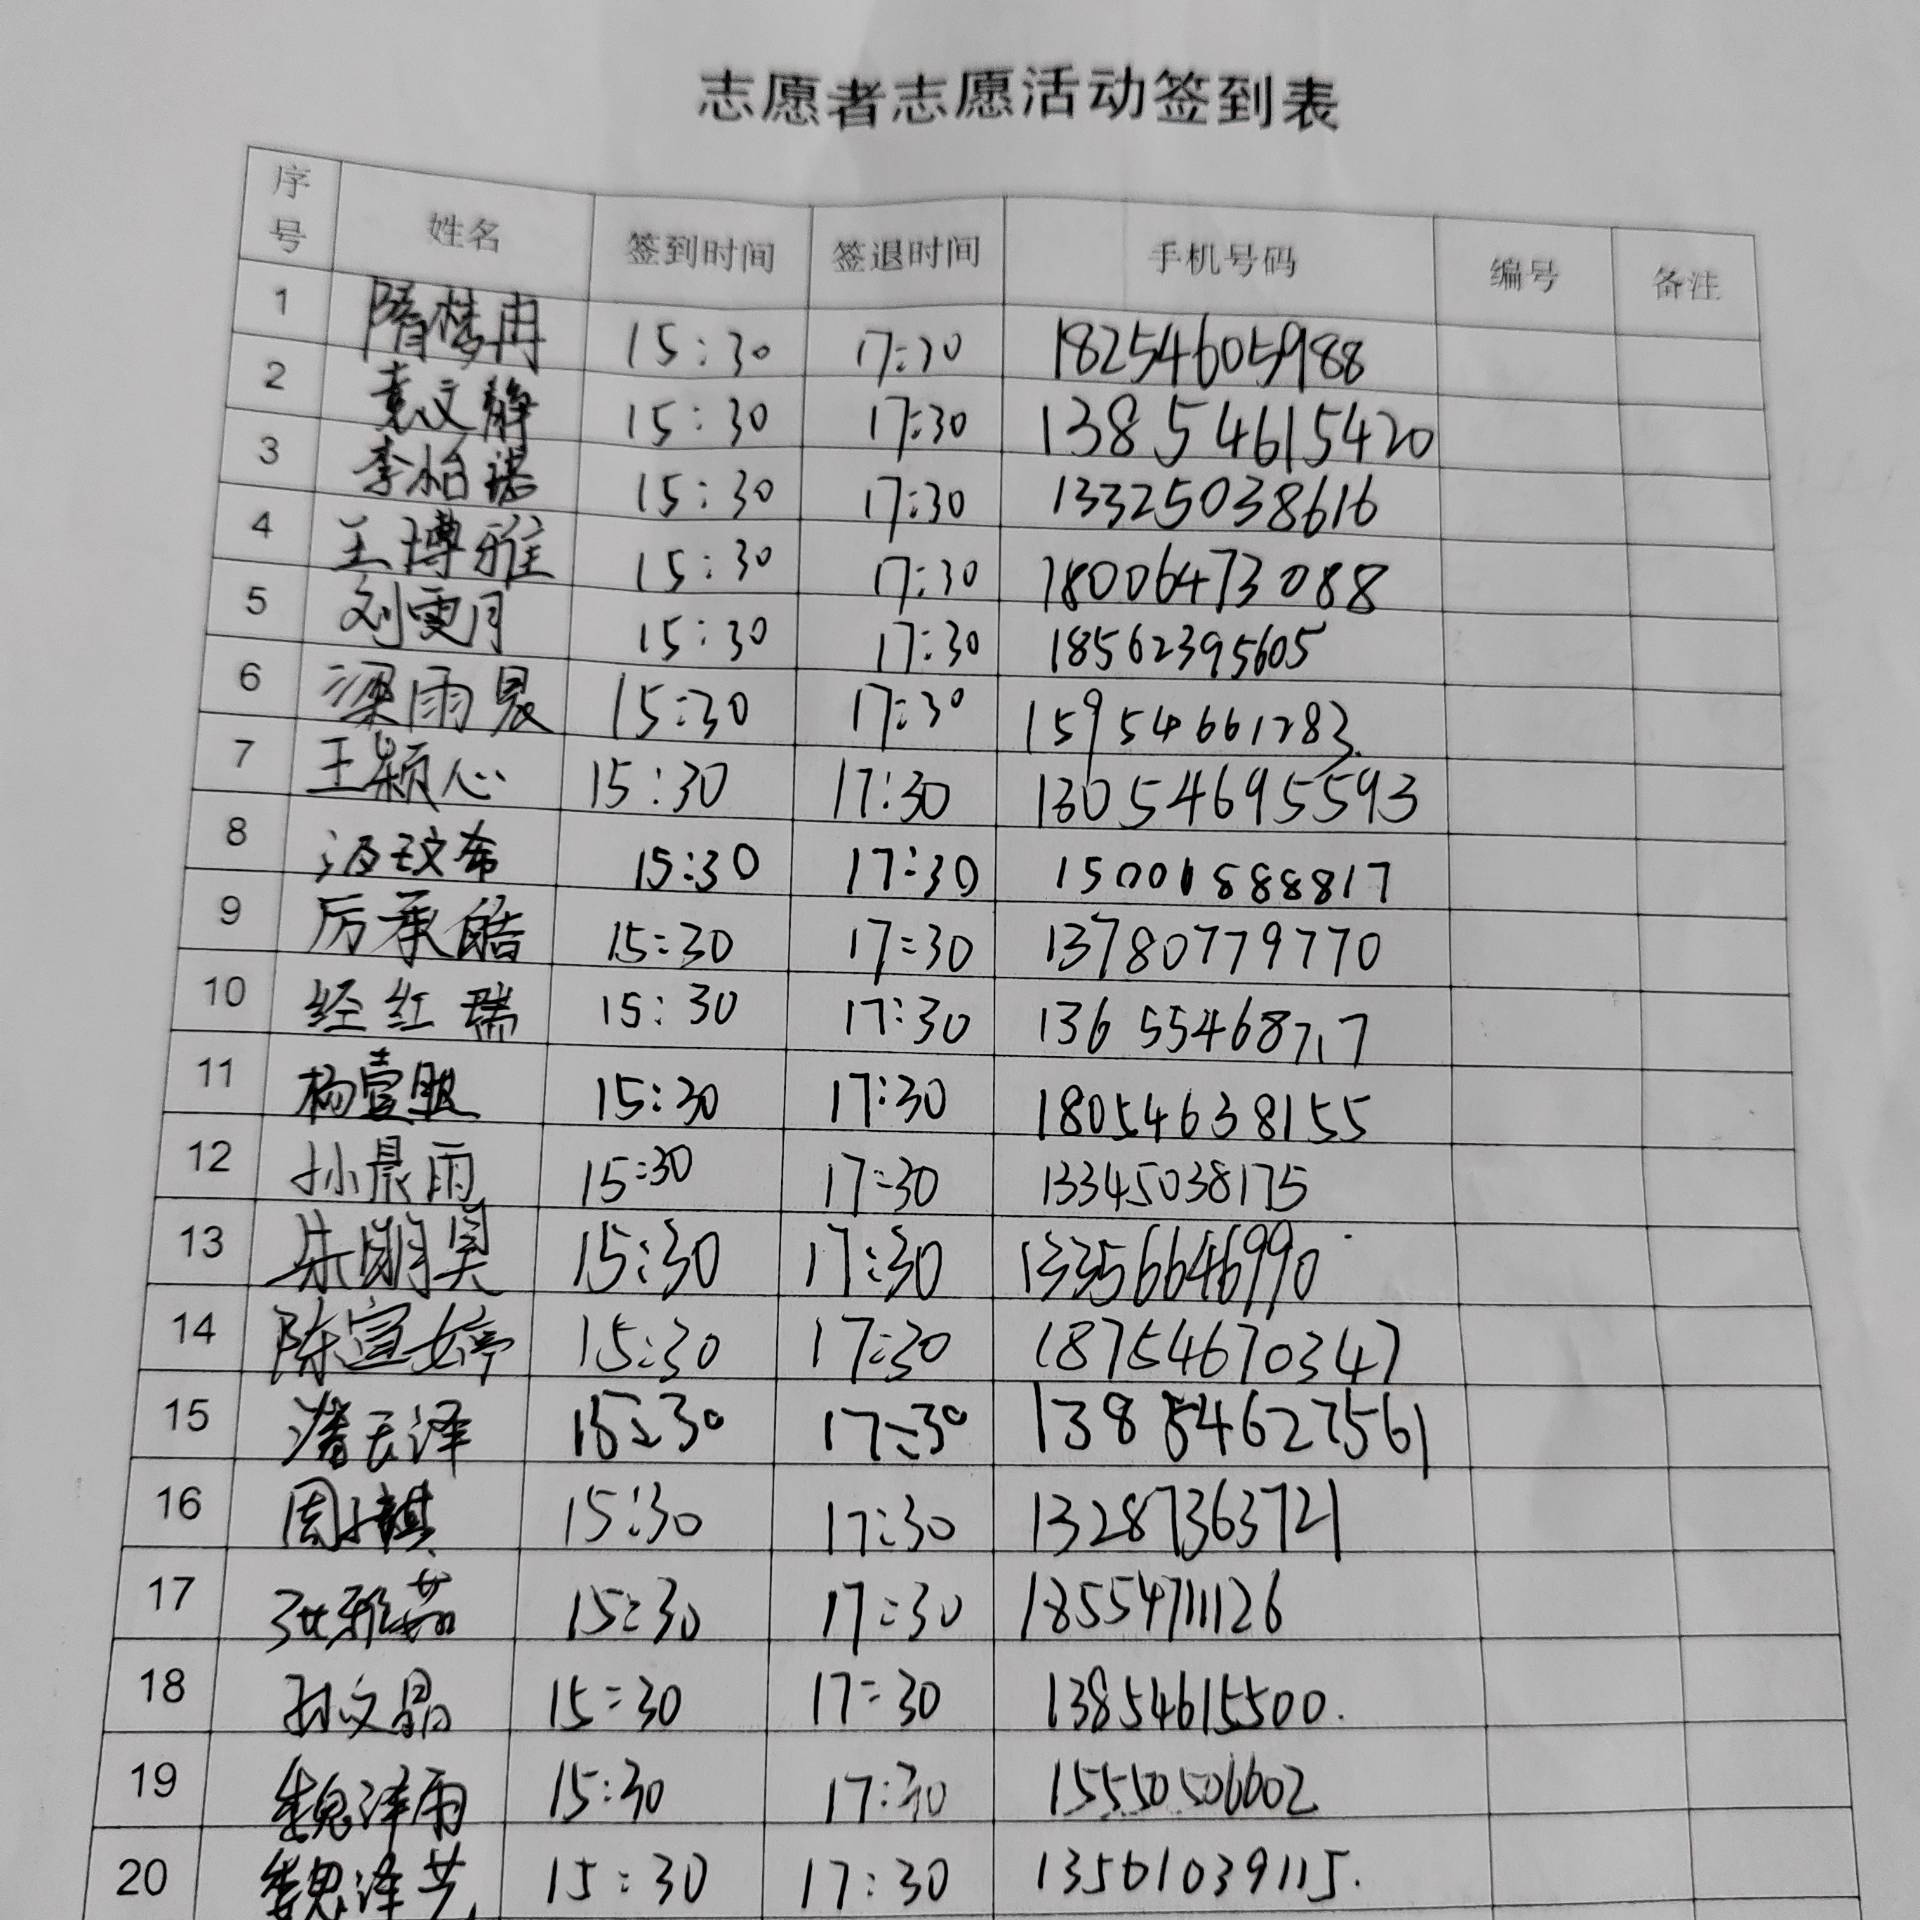 志愿者志愿活动签到表
序号 姓名 签到时间 签退时间 手机号码 编号 备注
1 隋梦冉 15:30 17:30 18254605988
2 袁文静 15:30 17:30 13854615420
3 李怡诺 15:30 17:30 13325038616
4 王博雅 15:30 17:30 18006473088
5 刘雯月 15:30 17:30 18562395605
6 梁雨晨 15:30 17:30 15954661283
7 王颖心 15:30 17:30 13054695593
8 汲玟希 15:30 17:30 15000888817
9 厉承皓 15:30 17:30 13780779770
10 经红瑞 15:30 17:30 13655468717
11 杨 15:30 17:30 18054638155
12 孙晨雨 15:30 17:30 13345038175
13 朱明昊 15:30 17:30 13356646990
14 陈宣婷 15:30 17:30 18754670347
15 潘天泽 15:30 17:30 13854627561
16 周 15:30 17:30 13287363721
17 张雅茹 15:30 17:30 18554711126
18 孙文晶 15:30 17:30 13854615500.
19 魏泽雨 15:30 17:30 15550506602
20 魏泽艺 15:30 17:30 13561039115.